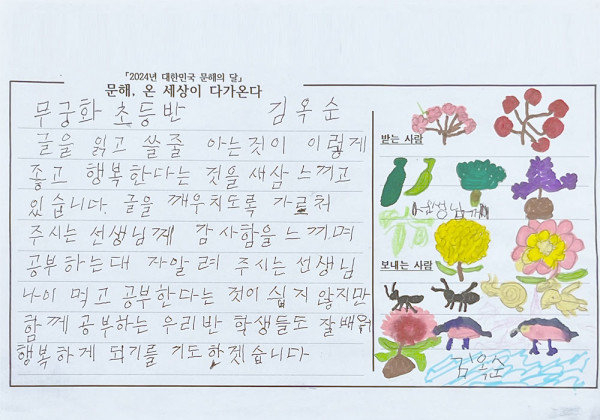 「2024년 대한민국 문해의 달」
문해, 온 세상이 다가온다
무궁화 초등반 김옥순
글을 읽고 쓸줄 아는것이 이렇게
좋고 행복한다는 것을 새삼 느끼고
있습니다. 글을 깨우치도록 가르쳐
주시는 선생님께 감사함을 느끼며
공부하는대 자알려 주시는 선생님
나이 먹고 공부한다는 것이 쉽지 않지만
함께 공부하는 우리반 학생들도 잘배워
행복하게 되기를 기도합겠습니다
받는 사람
선생님께
보내는 사람
김옥순